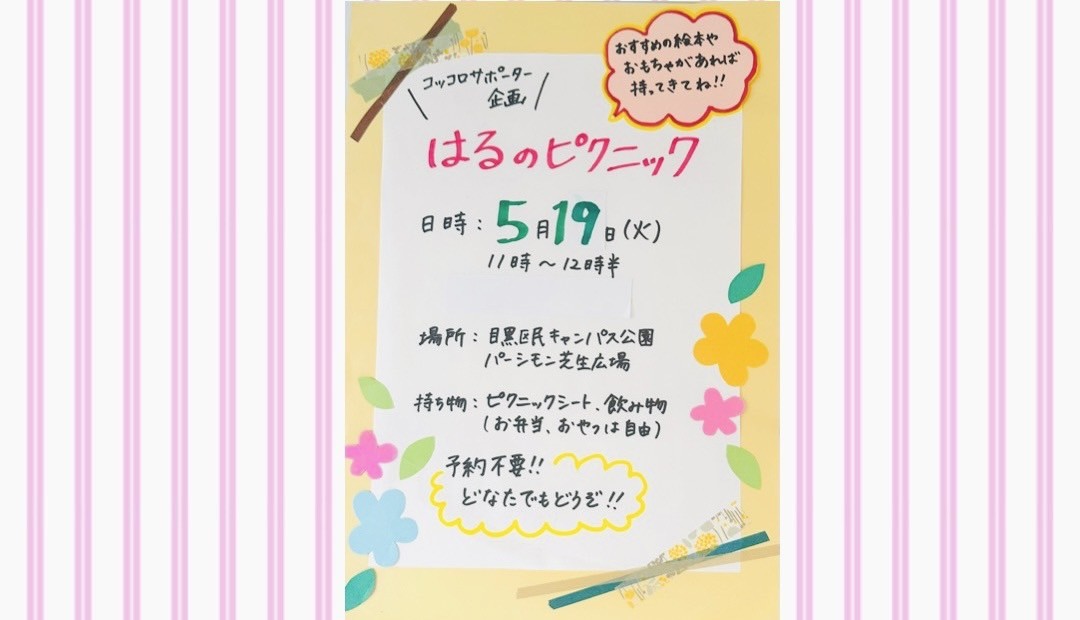 コッコロサポーター
企画
おすすめの絵本や
おもちゃがあれば
持ってきてね!!
はるのピクニック
日時：5月19日(火)
11時～12時半
場所：目黒区民キャンパス公園
パーシモン芝生広場
持ち物：ピクニックシート、飲み物
(お弁当、おやつは自由)
予約不要!!
どなたでもどうぞ!!